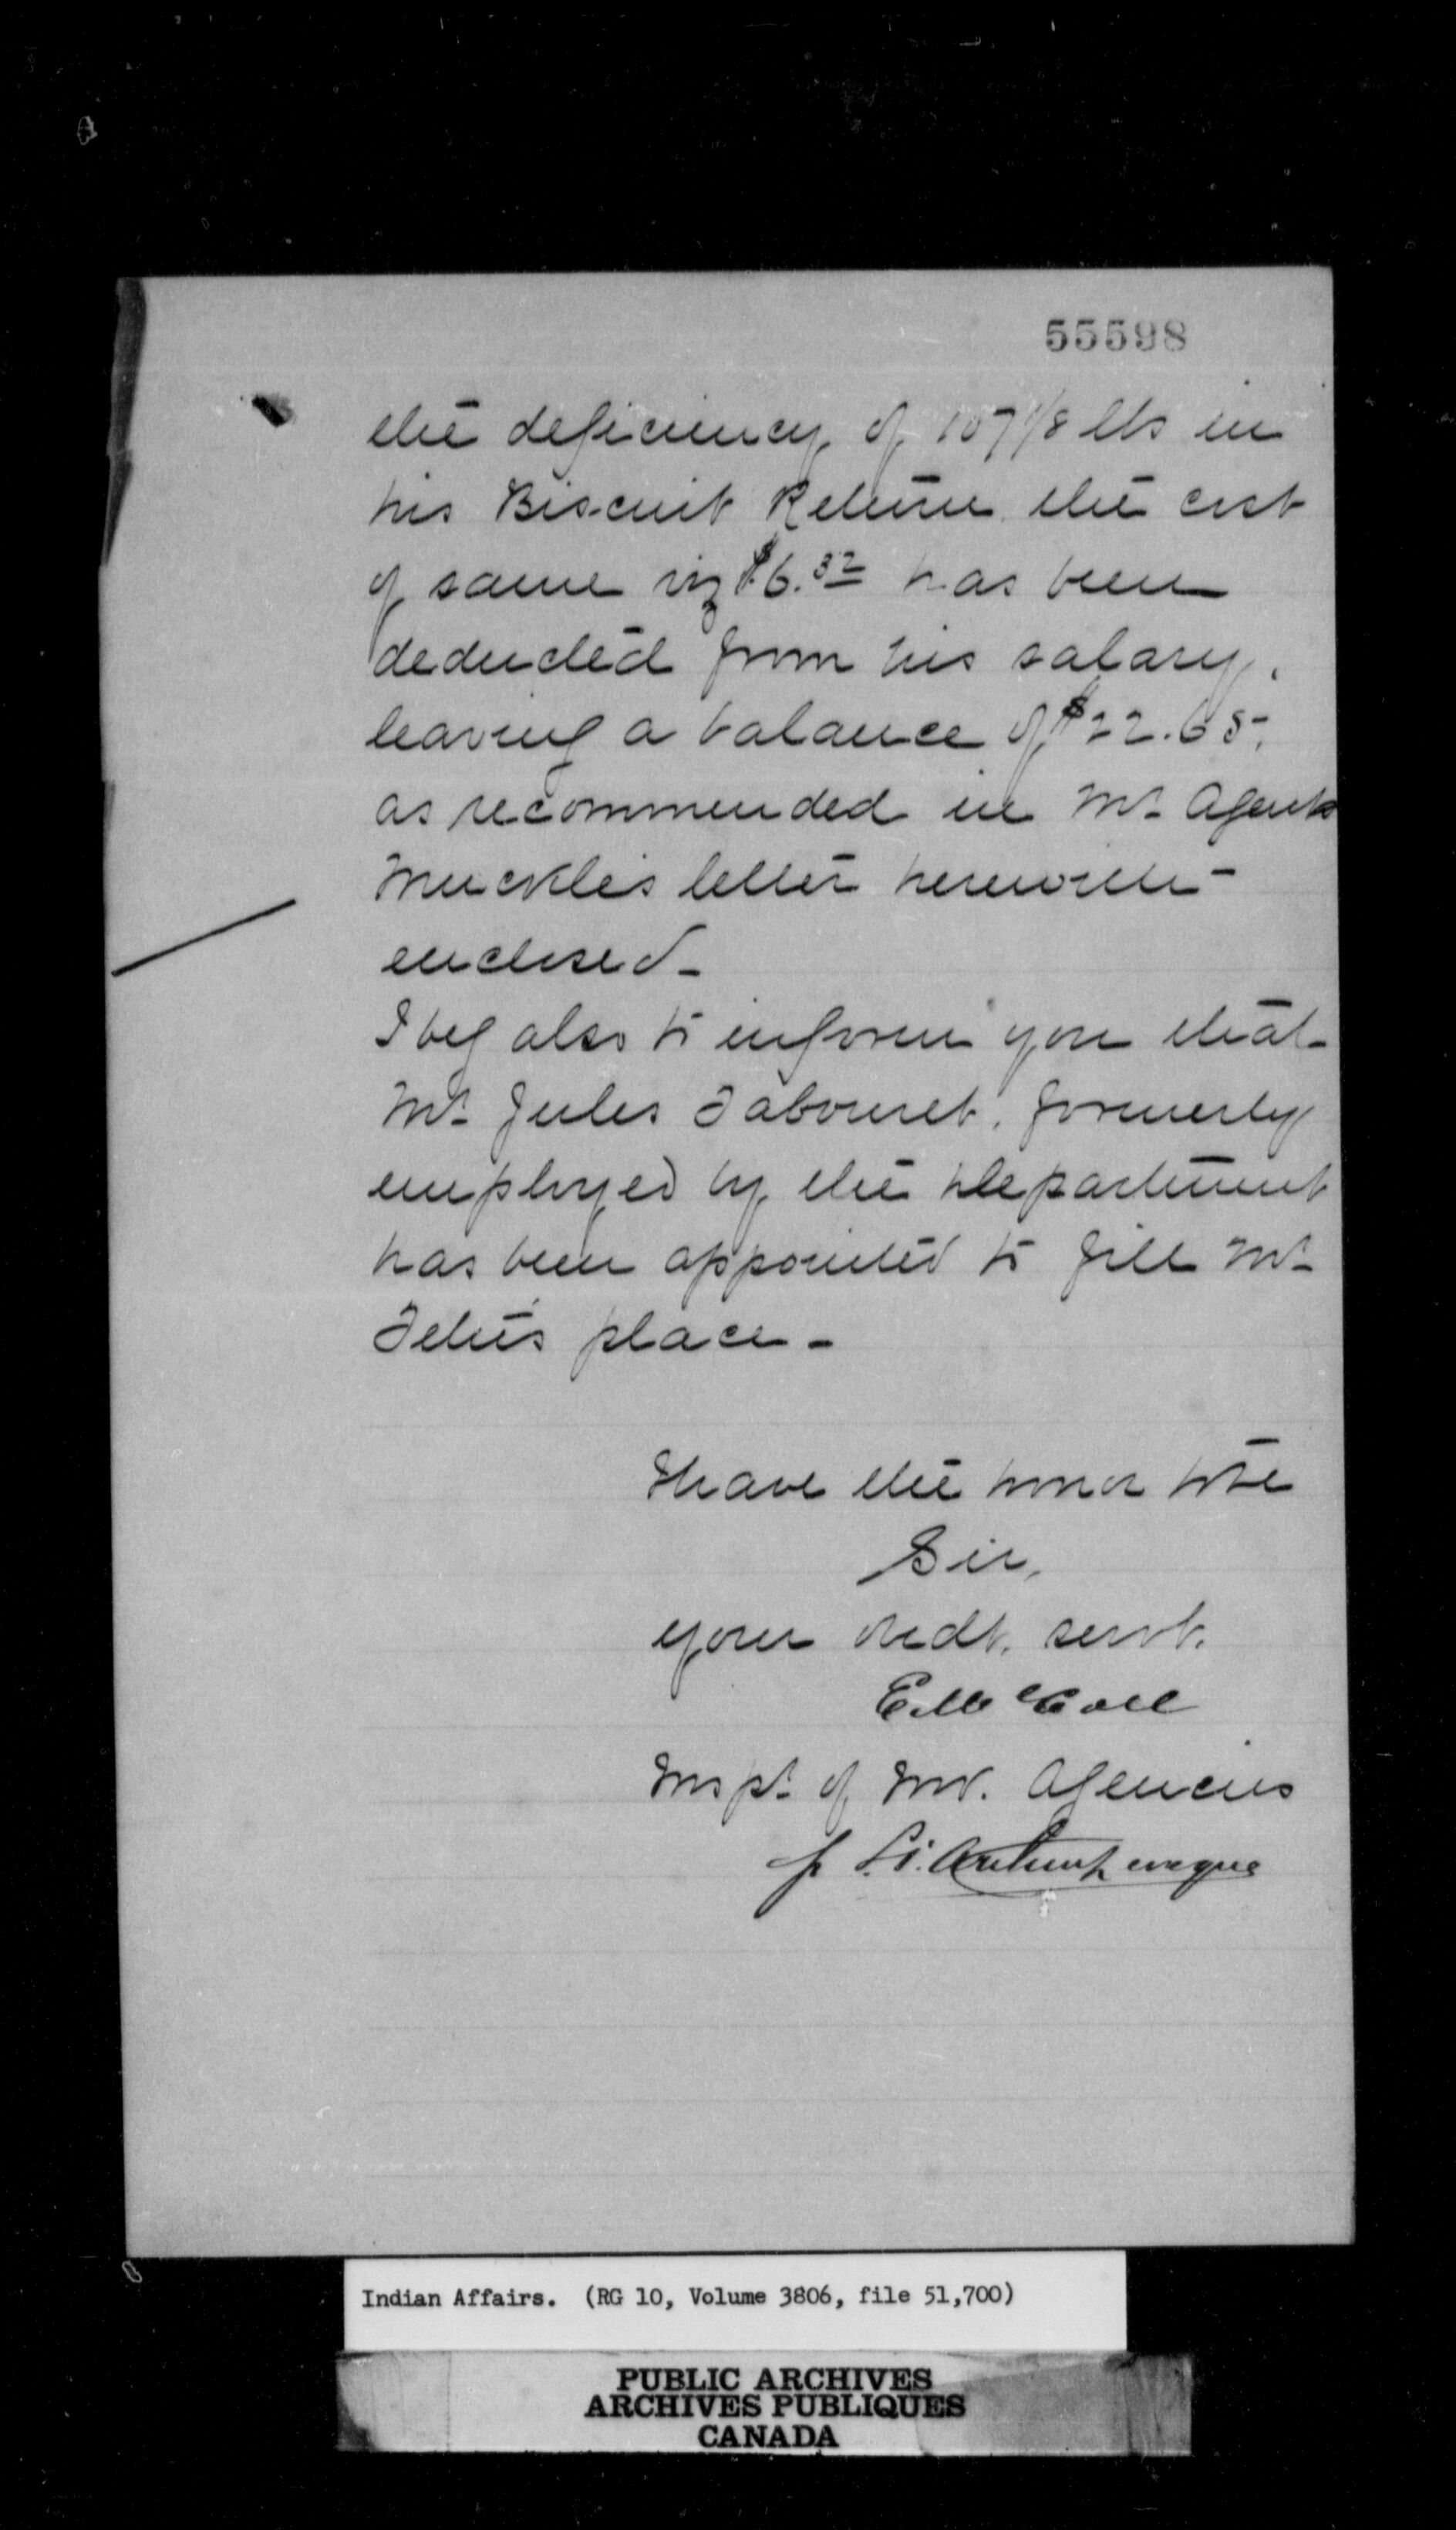 55598
the deficiency of 107 1/8 lbs in
his Biscuit Return the cost
of same viz $6.32 has been
deducted from his salary,
leaving a balance of $22.65,
as recommended in Mr. Agent
Muckle's letter herewith
enclosed -
I beg also to inform you that
Mr. Jules Tabouret, formerly
employed by the Department
has been appointed to fill Mr.
place -
I have the honor to be
Sir,
your obedt. servt.
E. McColl
Inspr. of Ind. Agencies
Indian Affairs. (RG 10, Volume 3806, file 51,700)
PUBLIC ARCHIVES
ARCHIVES PUBLIQUES
CANADA